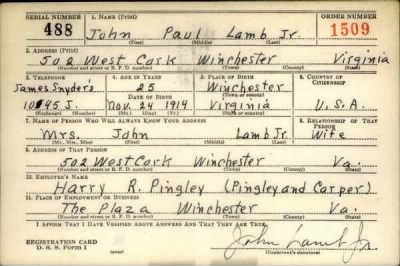 SERIAL NUMBER 1. NAME (Print) ORDER NUMBER
488 John Paul Lamb Jr. 1509
(First) (Middle) (Last)
2. ADDRESS (Print)
502 West Cork Winchester Virginia
(Number and street or R. F. D. number) (Town) (County) (State)
3. TELEPHONE 4. AGE IN YEARS 5. PLACE OF BIRTH 6. COUNTRY OF CITIZENSHIP
James Snyder's 25 Winchester
(Town or county)
DATE OF BIRTH
1045 J. Nov. 24 1914 Virginia U.S.A.
(Exchange) (Number) (Mo.) (Day) (Yr.) (State or country)
7. NAME OF PERSON WHO WILL ALWAYS KNOW YOUR ADDRESS 8. RELATIONSHIP OF THAT PERSON
Mrs. John Lamb Jr. Wife
(Mr., Mrs., Miss) (First) (Middle) (Last)
9. ADDRESS OF THAT PERSON
502 West Cork Winchester Va.
(Number and street or R. F. D. number) (Town) (County) (State)
10. EMPLOYER'S NAME
Harry R. Pingley (Pingley and Carper)
11. PLACE OF EMPLOYMENT OR BUSINESS
The Plaza Winchester Va.
(Number and street or R. F. D. number) (Town) (County) (State)
I AFFIRM THAT I HAVE VERIFIED ABOVE ANSWERS AND THAT THEY ARE TRUE.
REGISTRATION CARD
D. S. S. Form 1 John Lamb Jr.
(Registrant's signature)